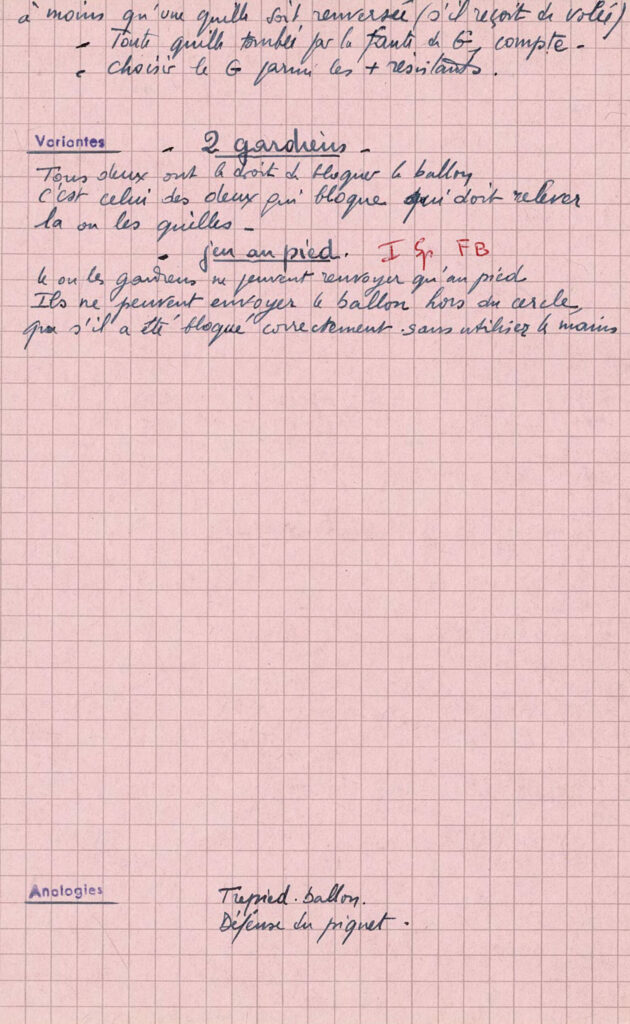 à moins qu'une quille soit renversée (s'il reçoit de volée)
- Toute quille tombée par la faute du G, compte -
- Choisir le G parmi les + résistants.
Variantes
- 2 gardiens -
Tous deux ont le droit de bloquer le ballon
C'est celui des deux qui bloque qui doit relever
la ou les quilles -
- jeu au pied. I Sp FB
le ou les gardiens ne peuvent renvoyer qu'au pied
Ils ne peuvent envoyer le ballon hors du cercle,
que s'il a été bloqué correctement sans utiliser le mains
Analogies
Trepied. ballon.
Défense du piquet.